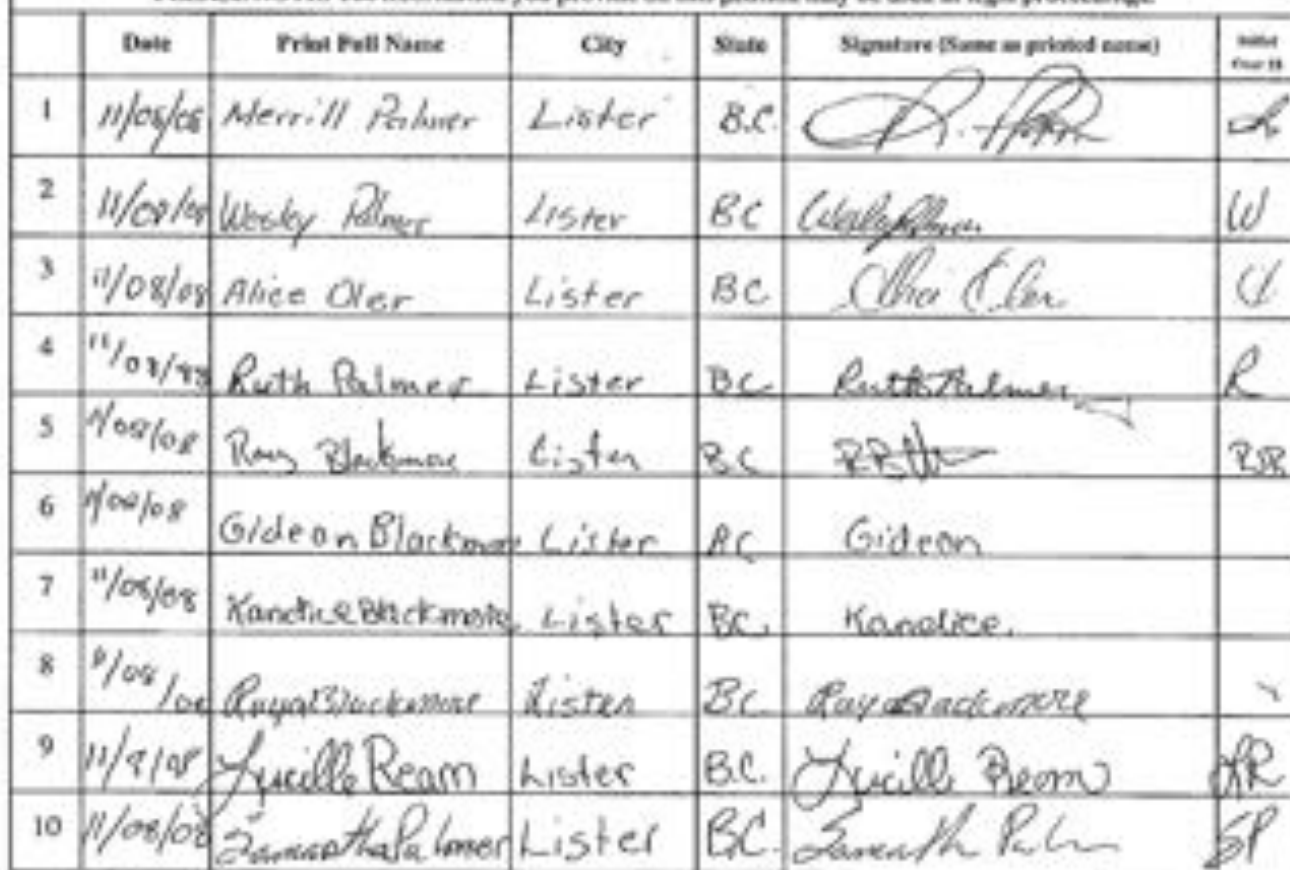 Date Print Full Name City State Signature (Same as printed name)
1 11/08/08 Merrill Palmer Lister B.C.
2 11/08/08 Wesley Palmer Lister BC Wesley Palmer W
3 11/08/08 Alice Oler Lister BC
4 11/08/98 Ruth Palmer Lister BC. Ruth Palmer R
5 11/08/08 Ray Blackmore Lister BC RRB
6 11/08/08 Gideon Blackmore Lister BC Gideon
7 11/08/08 Kandice Blackmore Lister BC. Kandice.
8 11/08/08 Blackmore Lister BC. Blackmore
9 11/9/08 Lucille Ream Lister B.C. Lucille Ream LR
10 11/08/08 Samantha Palmer Lister BC. Samantha SP